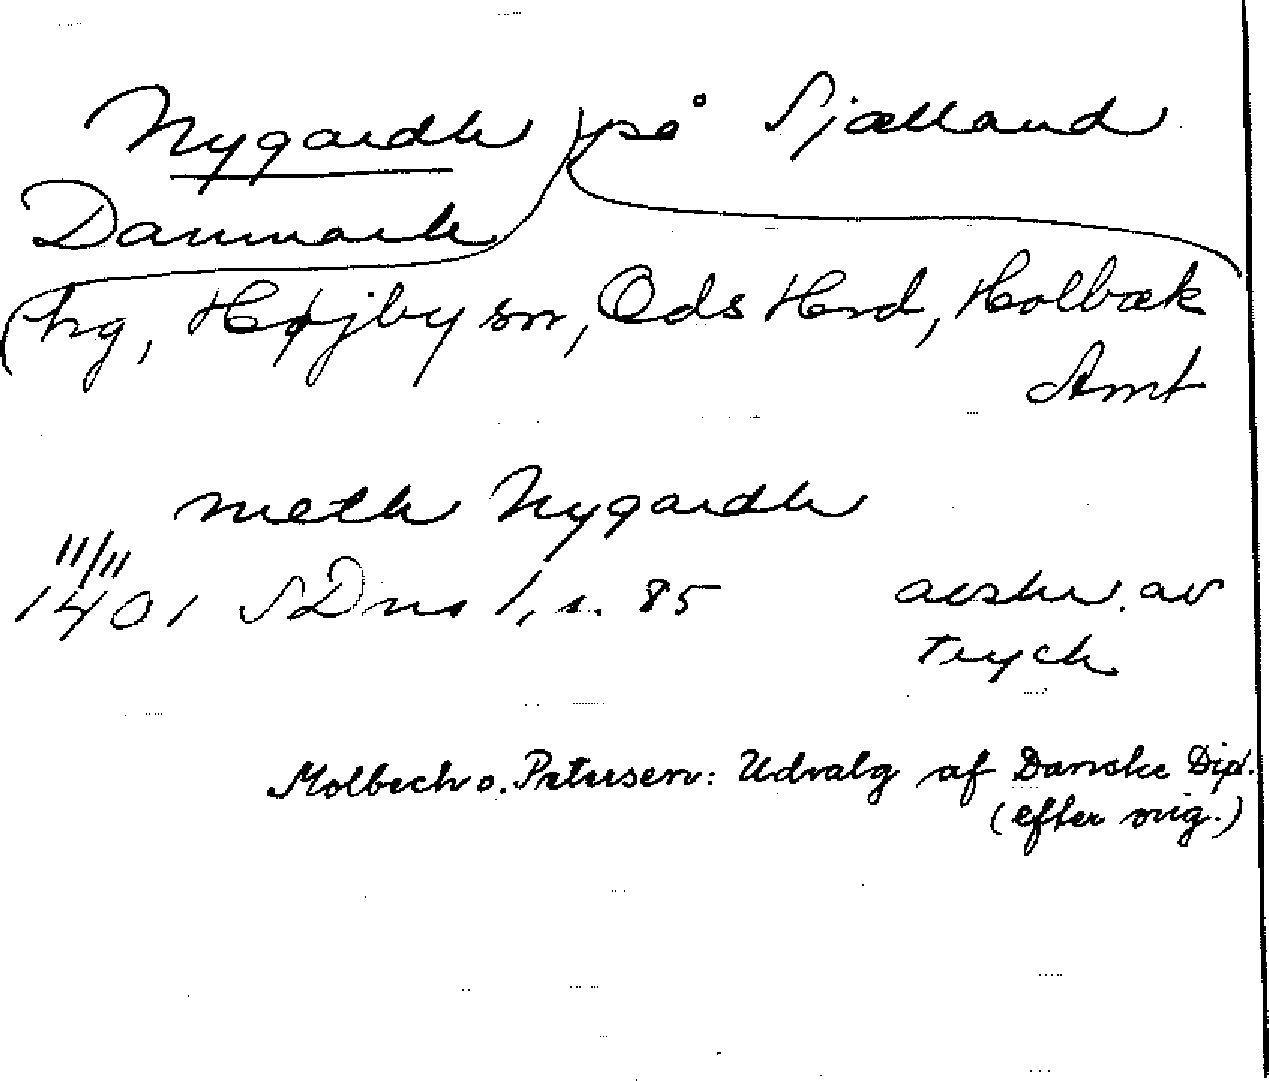 Nygardh på Sjælland
Danmark
(hg, Højby sn, Ods Herred, Holbæk
Amt
meth Nygardh
11/11
1401 SDns 1, s. 85 avskr. av
tryck
Molbech o. Petersen: Udvalg af Danske Dipl.
(efter orig.)